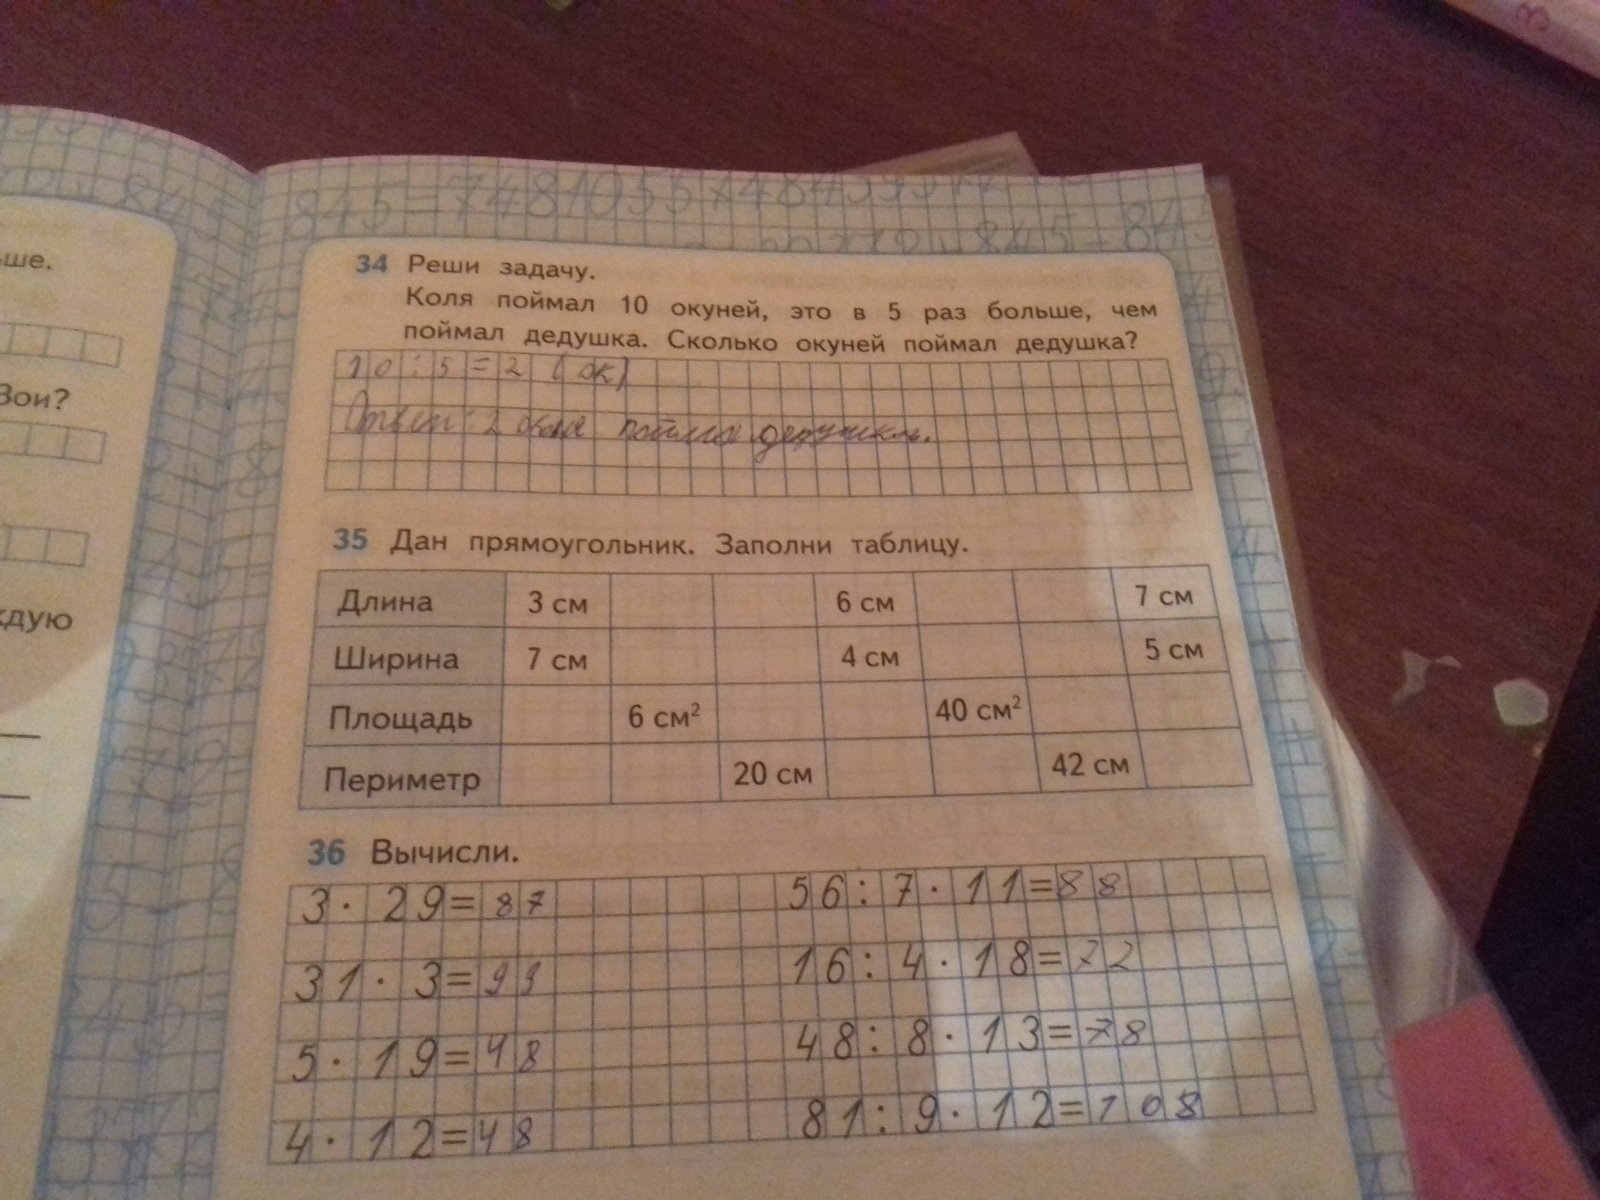 ьше.
Зои?
ждую
845=7481055
34 Реши задачу.
Коля поймал 10 окуней, это в 5 раз больше, чем
поймал дедушка. Сколько окуней поймал дедушка?
10:5=2 (ок)
Ответ: 2 окуня поймал дедушка.
35 Дан прямоугольник. Заполни таблицу.
Длина 3 см 6 см 7 см
Ширина 7 см 4 см 5 см
Площадь 6 см² 40 см²
Периметр 20 см 42 см
36 Вычисли.
3·29=87 56:7·11=88
31·3=93 16:4·18=72
5·19=48 48:8·13=78
4·12=48 81:9·12=108